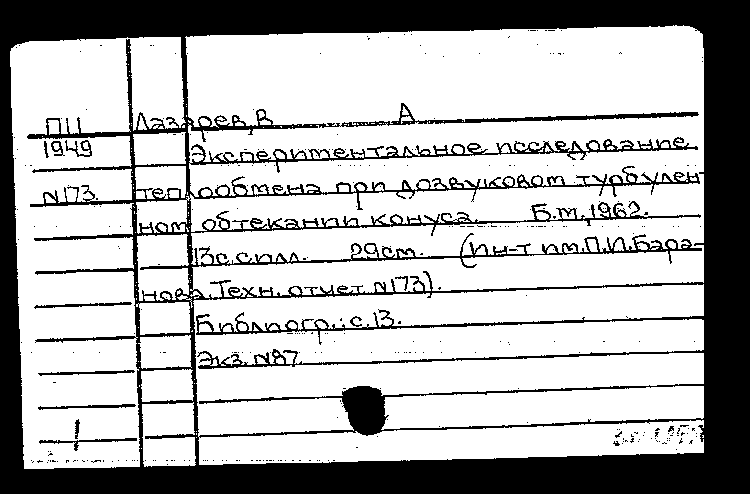 ПП Лазарев, В А
1949 Экспериментальное исследование
N173 теплообмена при дозвуковом турбулен-
ном обтекании конуса. Б.м., 1962.
13с.силл. 29см. (Ин-т им.П.И.Бара-
нова. Техн. отчет N173).
Библиогр.: с.13.
Экз. N87
1